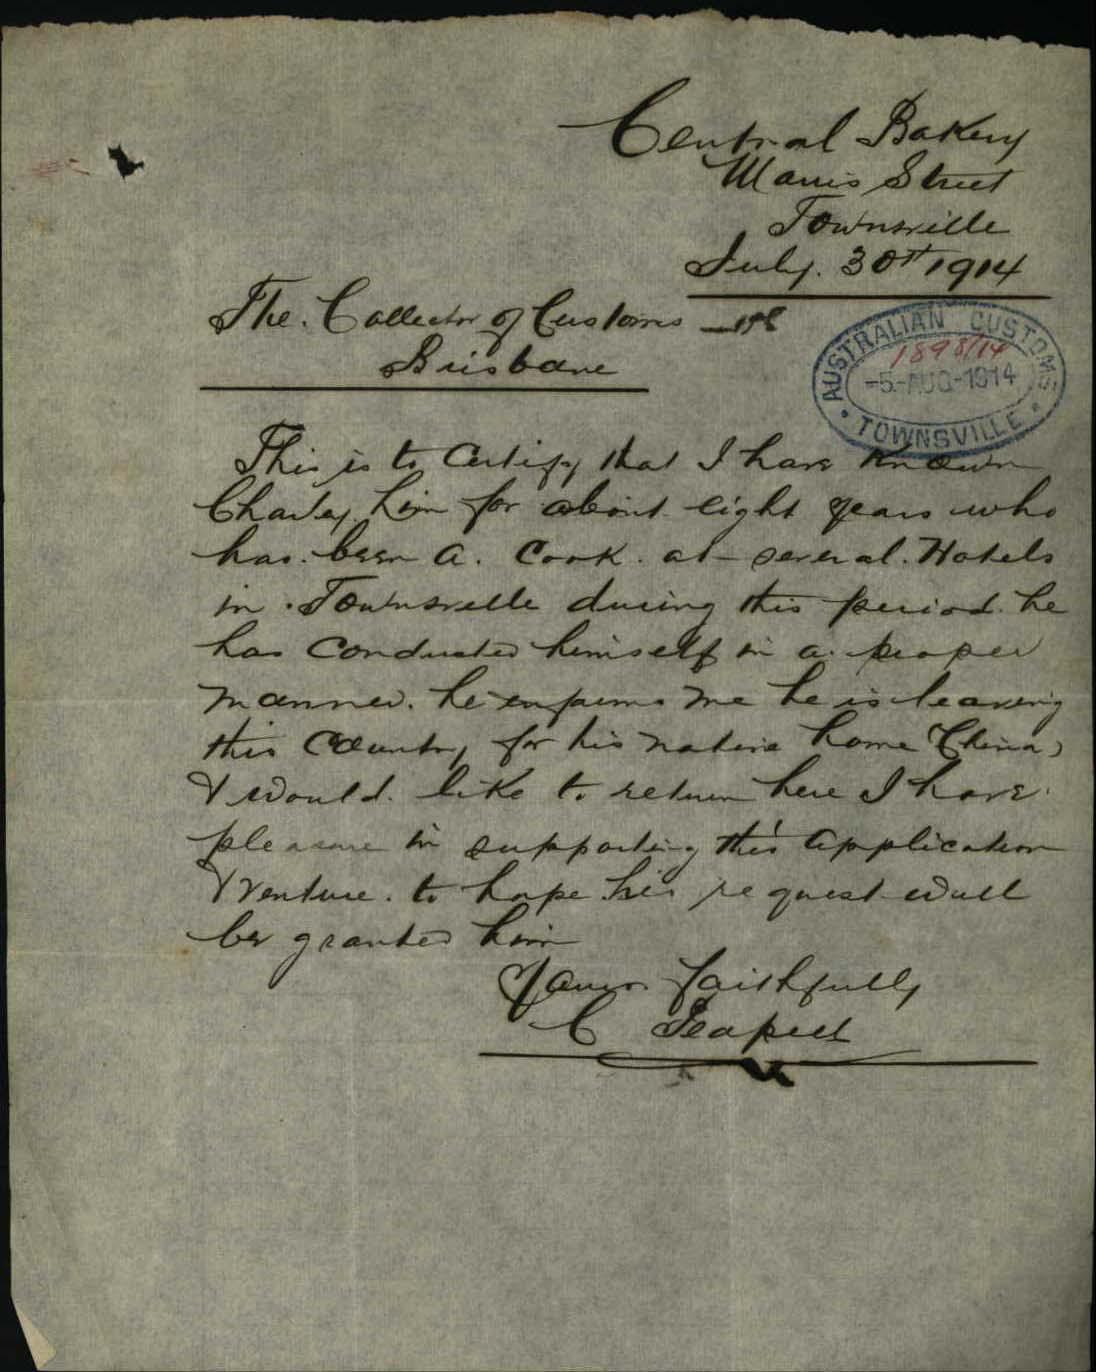 Central Bakery
Street
Townsville
July. 30th 1914
The. Collector of Customs
Brisbane
AUSTRALIAN CUSTOMS
1898/14
-5-AUG-1914
TOWNSVILLE
This is to Certify that I have Known
Charley him for about eight years who
has. been a. Cook. at several. Hotels
in. Townsville during this period. he
has Conducted himself in a. proper
manner. he enforms me he is leaving
this Country for his native home China
& would. like to return here I have.
pleasure in supporting this application
& venture. to hope his request will
be granted him
Yours faithfully
C